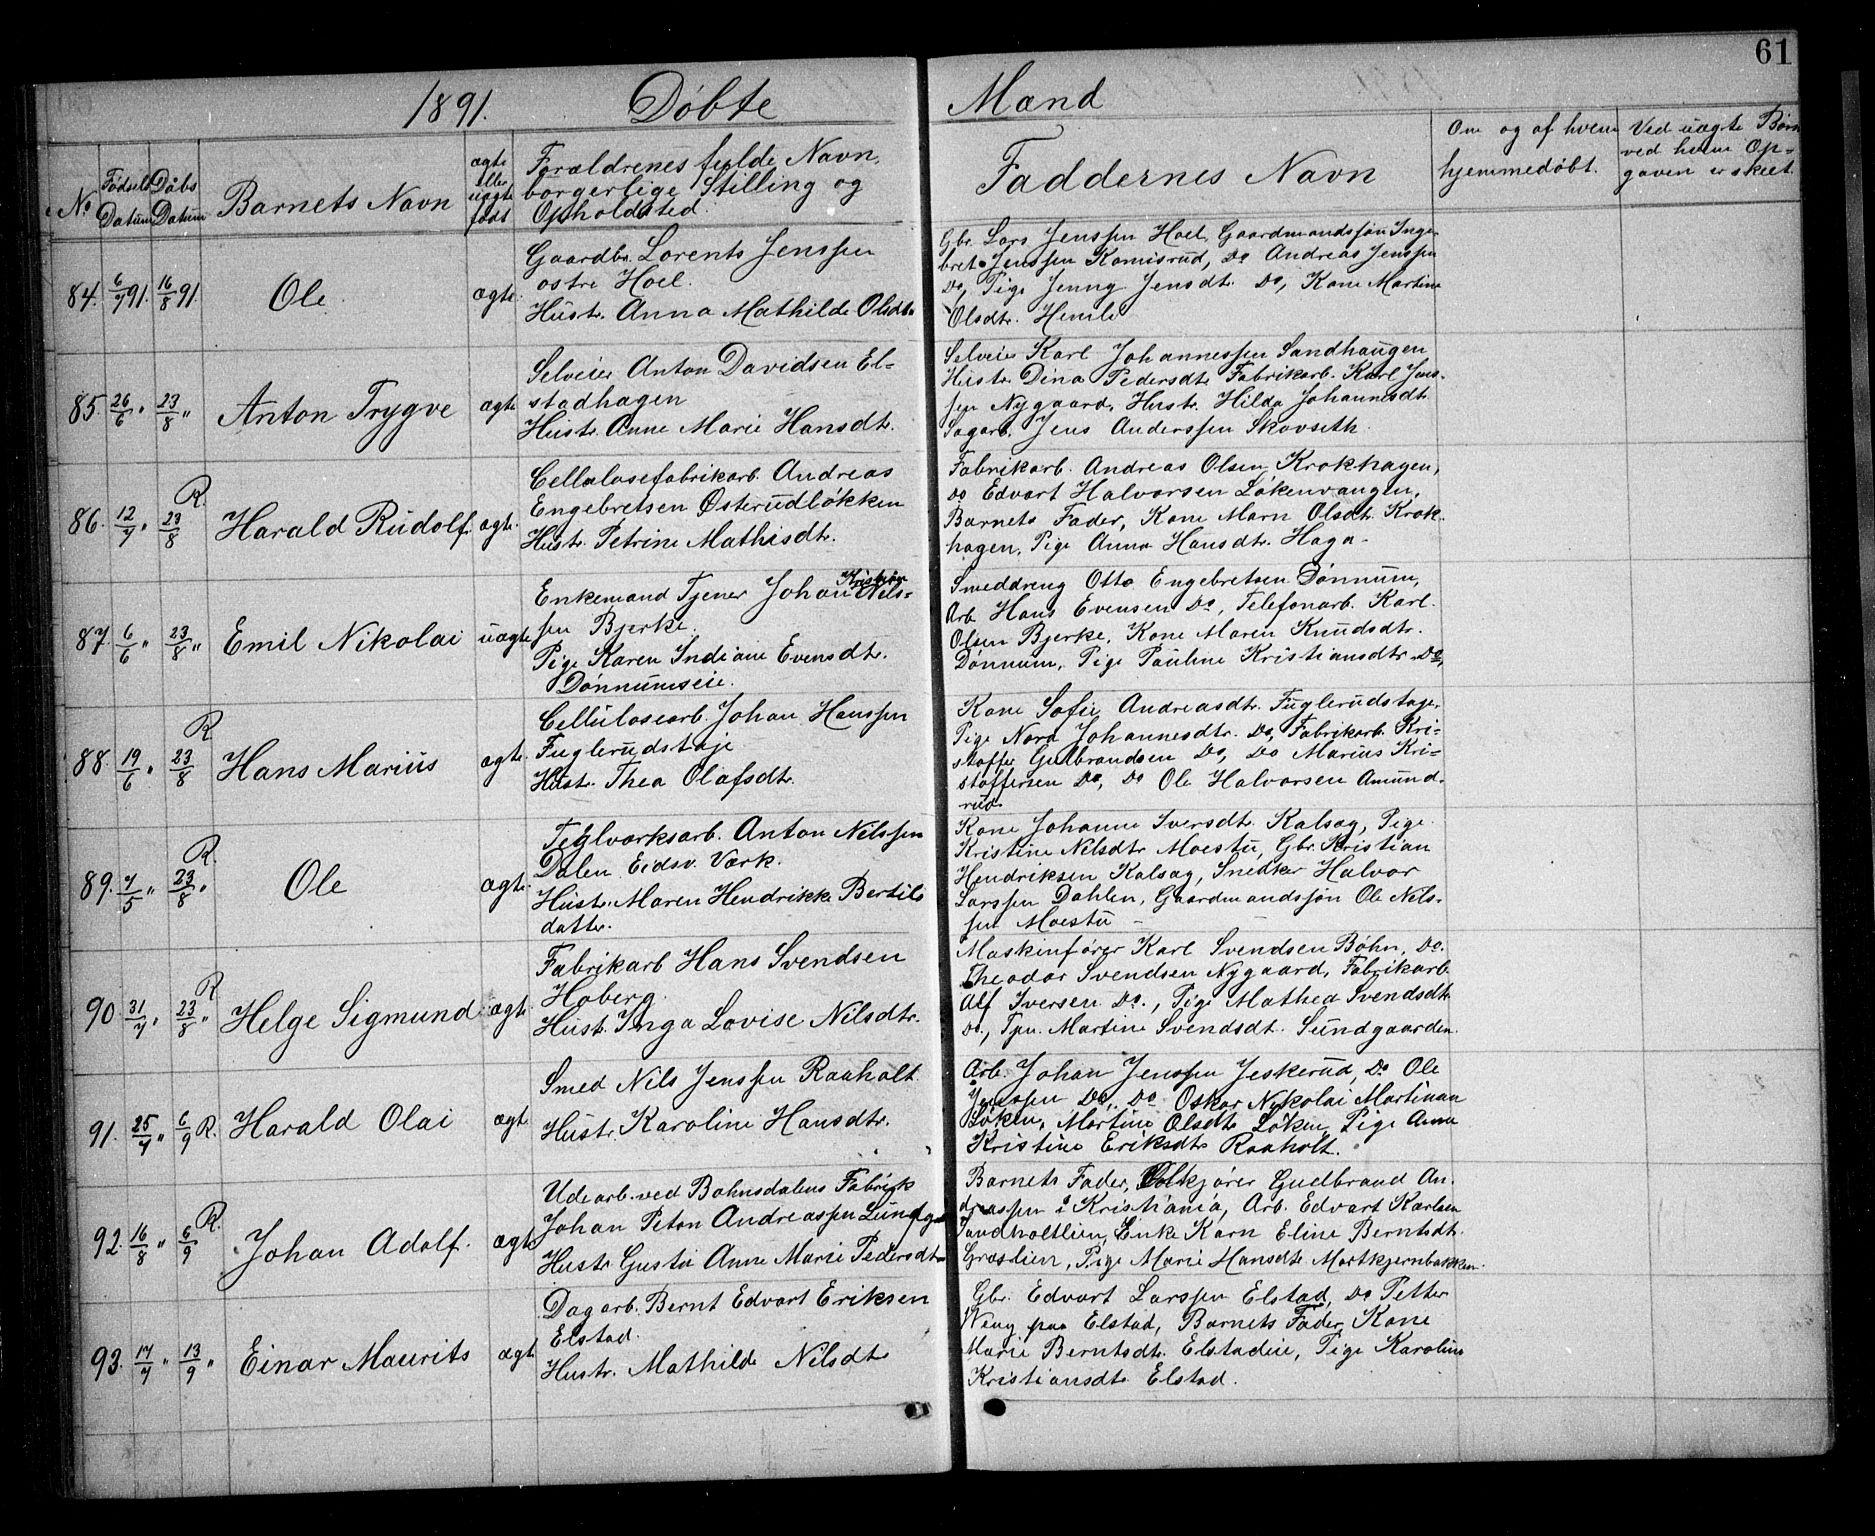 61
1891. Døbte Mænd
No
Fødsels Datum
Døbs Datum
Barnets Navn
ægte eller uægte født
Forældrenes fulde Navn,
borgerlige Stilling og
Opholdsted.
Faddernes Navn
Om og af hvem
hjemmedøbt.
Ved uægte Børn
ved hvem Op-
gaven er skeet.
84. 6/7 91. 16/8 91. Ole ægte.
Gaardbr. Lorents Jenssen
østre Hoel.
Hustr. Anna Mathilde Olsdtr.
Gbr. Lars Jenssen Hoel, Gaardmandssøn Inge-
bret Jenssen Komisrud, Do Andreas Jenssen
Do, Pige Jenny Jensdtr. Do, Kone Martine
Olsdtr. Hemli
85. 26/6 " 23/8 " Anton Trygve ægte
Selveier Anton Davidsen El-
stadhagen
Hustr. Anne Marie Hansdtr.
Selveier Karl Johannessen Sandhaugen
Hustr. Dina Pedersdtr. Fabrikarb. Karl Jens-
sen Nygaard, Hustr. Hilda Johannesdtr.
Sagarb. Jens Anderssen Skovseth.
86. 12/7 " 23/8 R. Harald Rudolf. ægte.
Cellulosefabrikarb. Andreas
Engebretsen Østerudløkken
Hustr. Petrine Mathisdtr.
Fabrikarb. Andreas Olsen Krokhagen,
Do Edvart Halvorsen Løkenvangen,
Barnets Fader, Kone Marn Olsdtr. Krok-
hagen, Pige Anna Hansdtr. Haga.
87. 6/6 " 23/8 " Emil Nikolai uægte
Enkemand Tjener Johan Kristian Nils-
sen Bjerke.
Pige Karen Indiane Evensdtr.
Dønnumseie.
Smeddreng Otto Engebretsen Dønnum,
Arb. Hans Evensen Do, Telefonarb. Karl
Olsen Bjerke, Kone Maren Knudsdtr.
Dønnum, Pige Pauline Kristiansdtr. Do,
88. 19/6 " 23/8 R Hans Marius ægte.
Cellulosearb. Johan Hanssen
Fuglerudstøje
Hustr. Thea Olafsdtr.
Kone Sofie Andreasdtr. Fuglerudstøje,
Pige Nora Johannesdtr. Do, Fabrikarb. Kri-
stoffer Gulbrandsen Do, Do Marius Kri-
stoffersen Do, Do Ole Halvorsen Amund-
rud.
89. 7/5 " 23/8 " R. Ole ægte.
Teglværksarb. Anton Nilssen
Dalen Eidsv. Værk.
Hustr. Maren Hendrikke Bertils
datter.
Kone Johanne Iversdtr. Kalsag, Pige
Kristine Nilsdtr Moestu, Gbr. Kristian
Hendriksen Kalsag, Snedker Halvor
Larssen Dahlen, Gaardmandssøn Ole Nils-
sen Moestu
90. 31/7 " 23/8 " R Helge Sigmund ægte
Fabrikarb Hans Svendsen
Hoberg.
Hustr. Inga Lovise Nilsdtr.
Maskinfører Karl Svendsen Bøhn, Do.
Theodor Svendsen Nygaard, Fabrikarb.
Alf Iversen Do., Pige Mathea Svendsdtr.
Do., Tjen. Martine Svendsdt. Sundgaarden.
91. 25/7 " 6/9 R. Harald Olai ægt
Smed Nils Jenssen Raaholt
Hustr. Karoline Hansdtr.
Arb. Johan Jenssen Jeskerud, Do Ole
Jenssen Do, Do Oskar Nykolai Martinsen
Løken, Martine Olsdtr. Løken, Pige Anne
Kristine Eriksdtr. Raaholt.
92. 16/8 " 6/9 R. Johan Adolf. ægte
Udearb. ved Bøhnsdalens Fabrik
Johan Peton Andreassen
Hustr. Gusta Anne Marie Pedersdtr.
Barnets Fader, Gudbrand An-
dreassen i Kristiania, Arb. Edvart Karlsen
Enke Karn Eline Berntsdt.
Græslien, Pige Marie Hansdtr.
93. 17/7 " 13/9 " Einar Maurits ægt
Dagarb. Bernt Edvart Eriksen
Elstad.
Hustr. Mathilde Nilsdtr
Gbr. Edvart Larssen Elstad, Do Petter
Wang paa Elstad, Barnets Fader, Kone
Marie Berntsdt. Elstadeie, Pige Karoline
Kristiansdtr. Elstad.